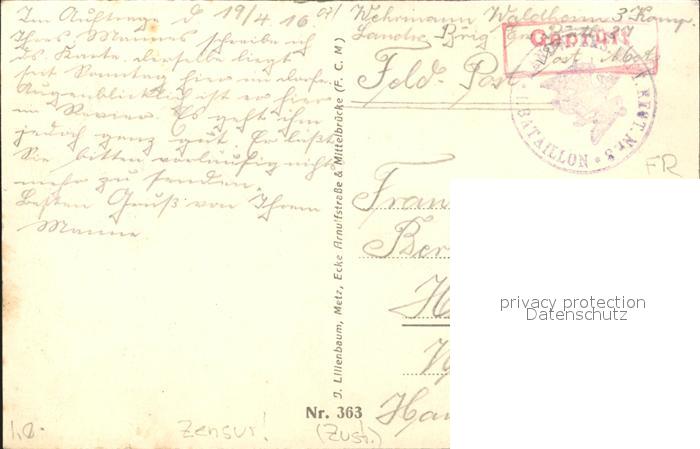 Im Auftrage d 19/4 16
Ihres Mannes schreibe ich
ds Karte. derselbe liegt
seit Sonntag hier im
Augenblicklich ist er hier
im Revier. Es geht ihm
jedoch ganz gut. Er läßt
Sie bitten vorläufig nichts
mehr zu senden.
Besten Gruß von Ihrem
Manne
Wehrmann Waldhorn 3 Komp.
Landw. Brig
Geprüft
Feld-Post
BATAILLON
FR
Fran
Ber
H
Han
J. Lilienbaum, Metz, Ecke Arnulfstraße & Mittelbrücke (F. C. M)
Nr. 363
Zensur!
(Zust.)
privacy protection
Datenschutz